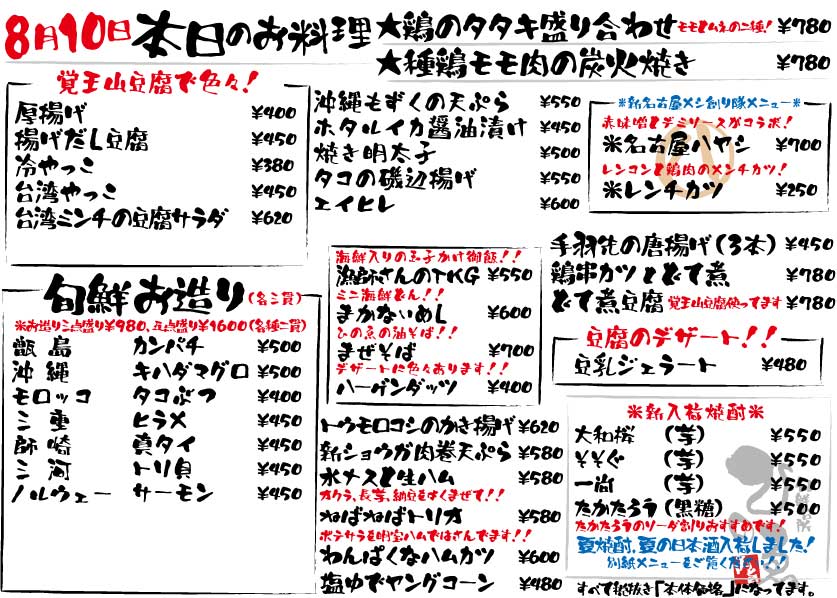 8月10日 本日のお料理
★鶏のタタキ盛り合わせ モモとムネの二種! ¥780
★種鶏モモ肉の炭火焼き ¥780
覚王山豆腐で色々!
厚揚げ ¥400
揚げだし豆腐 ¥450
冷やっこ ¥380
台湾やっこ ¥450
台湾ミンチの豆腐サラダ ¥620
沖縄もずくの天ぷら ¥550
ホタルイカ醤油漬け ¥450
焼き明太子 ¥500
タコの磯辺揚げ ¥550
エイヒレ ¥600
※新名古屋メシ創り隊メニュー※
赤味噌とデミソースがコラボ!
※名古屋ハヤシ ¥700
レンコンと鶏肉のメンチカツ!
※レンチカツ ¥250
手羽先の唐揚げ(3本) ¥450
鶏串カツとどて煮 ¥780
どて煮豆腐 覚王山豆腐使ってます ¥780
豆腐のデザート!!
豆乳ジェラート ¥480
旬鮮お造り(各三貫)
※お造り三点盛り¥980、五点盛り¥1600(各種二貫)
甑島 カンパチ ¥500
沖縄 キハダマグロ ¥500
モロッコ タコぶつ ¥400
三重 ヒラメ ¥450
師崎 真タイ ¥450
三河 トリ貝 ¥450
ノルウェー サーモン ¥450
海鮮入りの玉子かけ御飯!!
漁師さんのTKG ¥550
ミニ海鮮どん!!
まかないめし ¥600
ひの魚の油そば!!
まぜそば ¥700
デザートに色々あります!!
ハーゲンダッツ ¥400
トウモロコシのかき揚げ ¥620
新ショウガ肉巻天ぷら ¥580
水ナスと生ハム ¥580
オクラ、長芋、納豆をよくまぜて!!
ねばねばトリオ ¥580
ポテサラを明宝ハムではさんでます!!
わんぱくなハムカツ ¥600
塩ゆでヤングコーン ¥480
※新入荷焼酎※
大和桜 (芋) ¥550
そそぐ (芋) ¥550
一尚 (芋) ¥550
たかたろう(黒糖) ¥500
たかたろうのソーダ割りおすすめです!
夏焼酎、夏の日本酒入荷しました!
別紙メニューをご覧ください!!
すべて税抜き「本体価格」になってます。